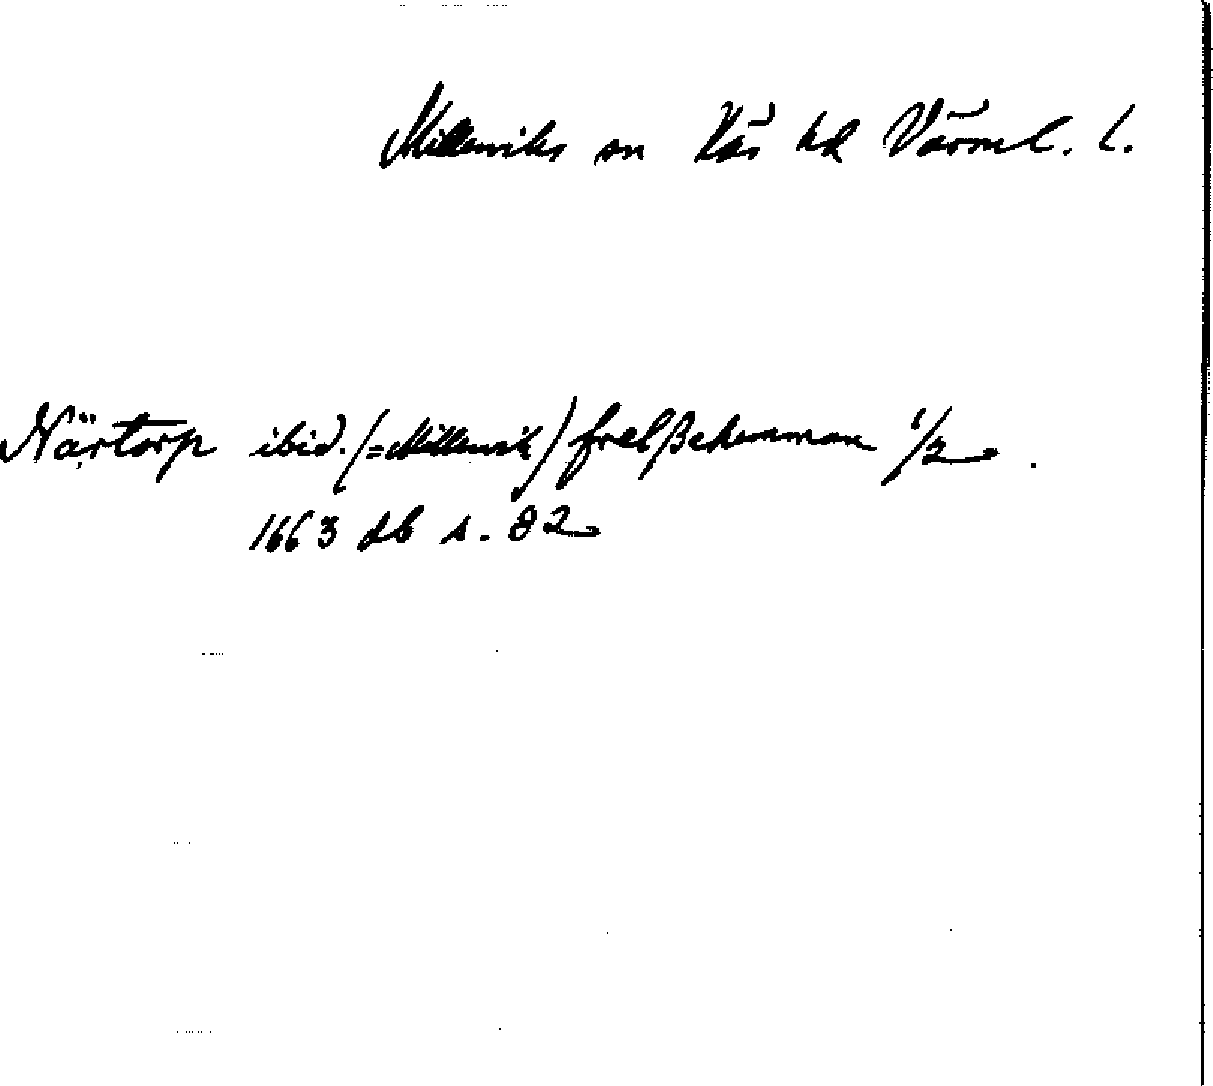 Milleviks sn Näs hd Värml. l.
Närtorp ibid. (= Millevik) frelßehemman 1/2.
1663 db s. 82